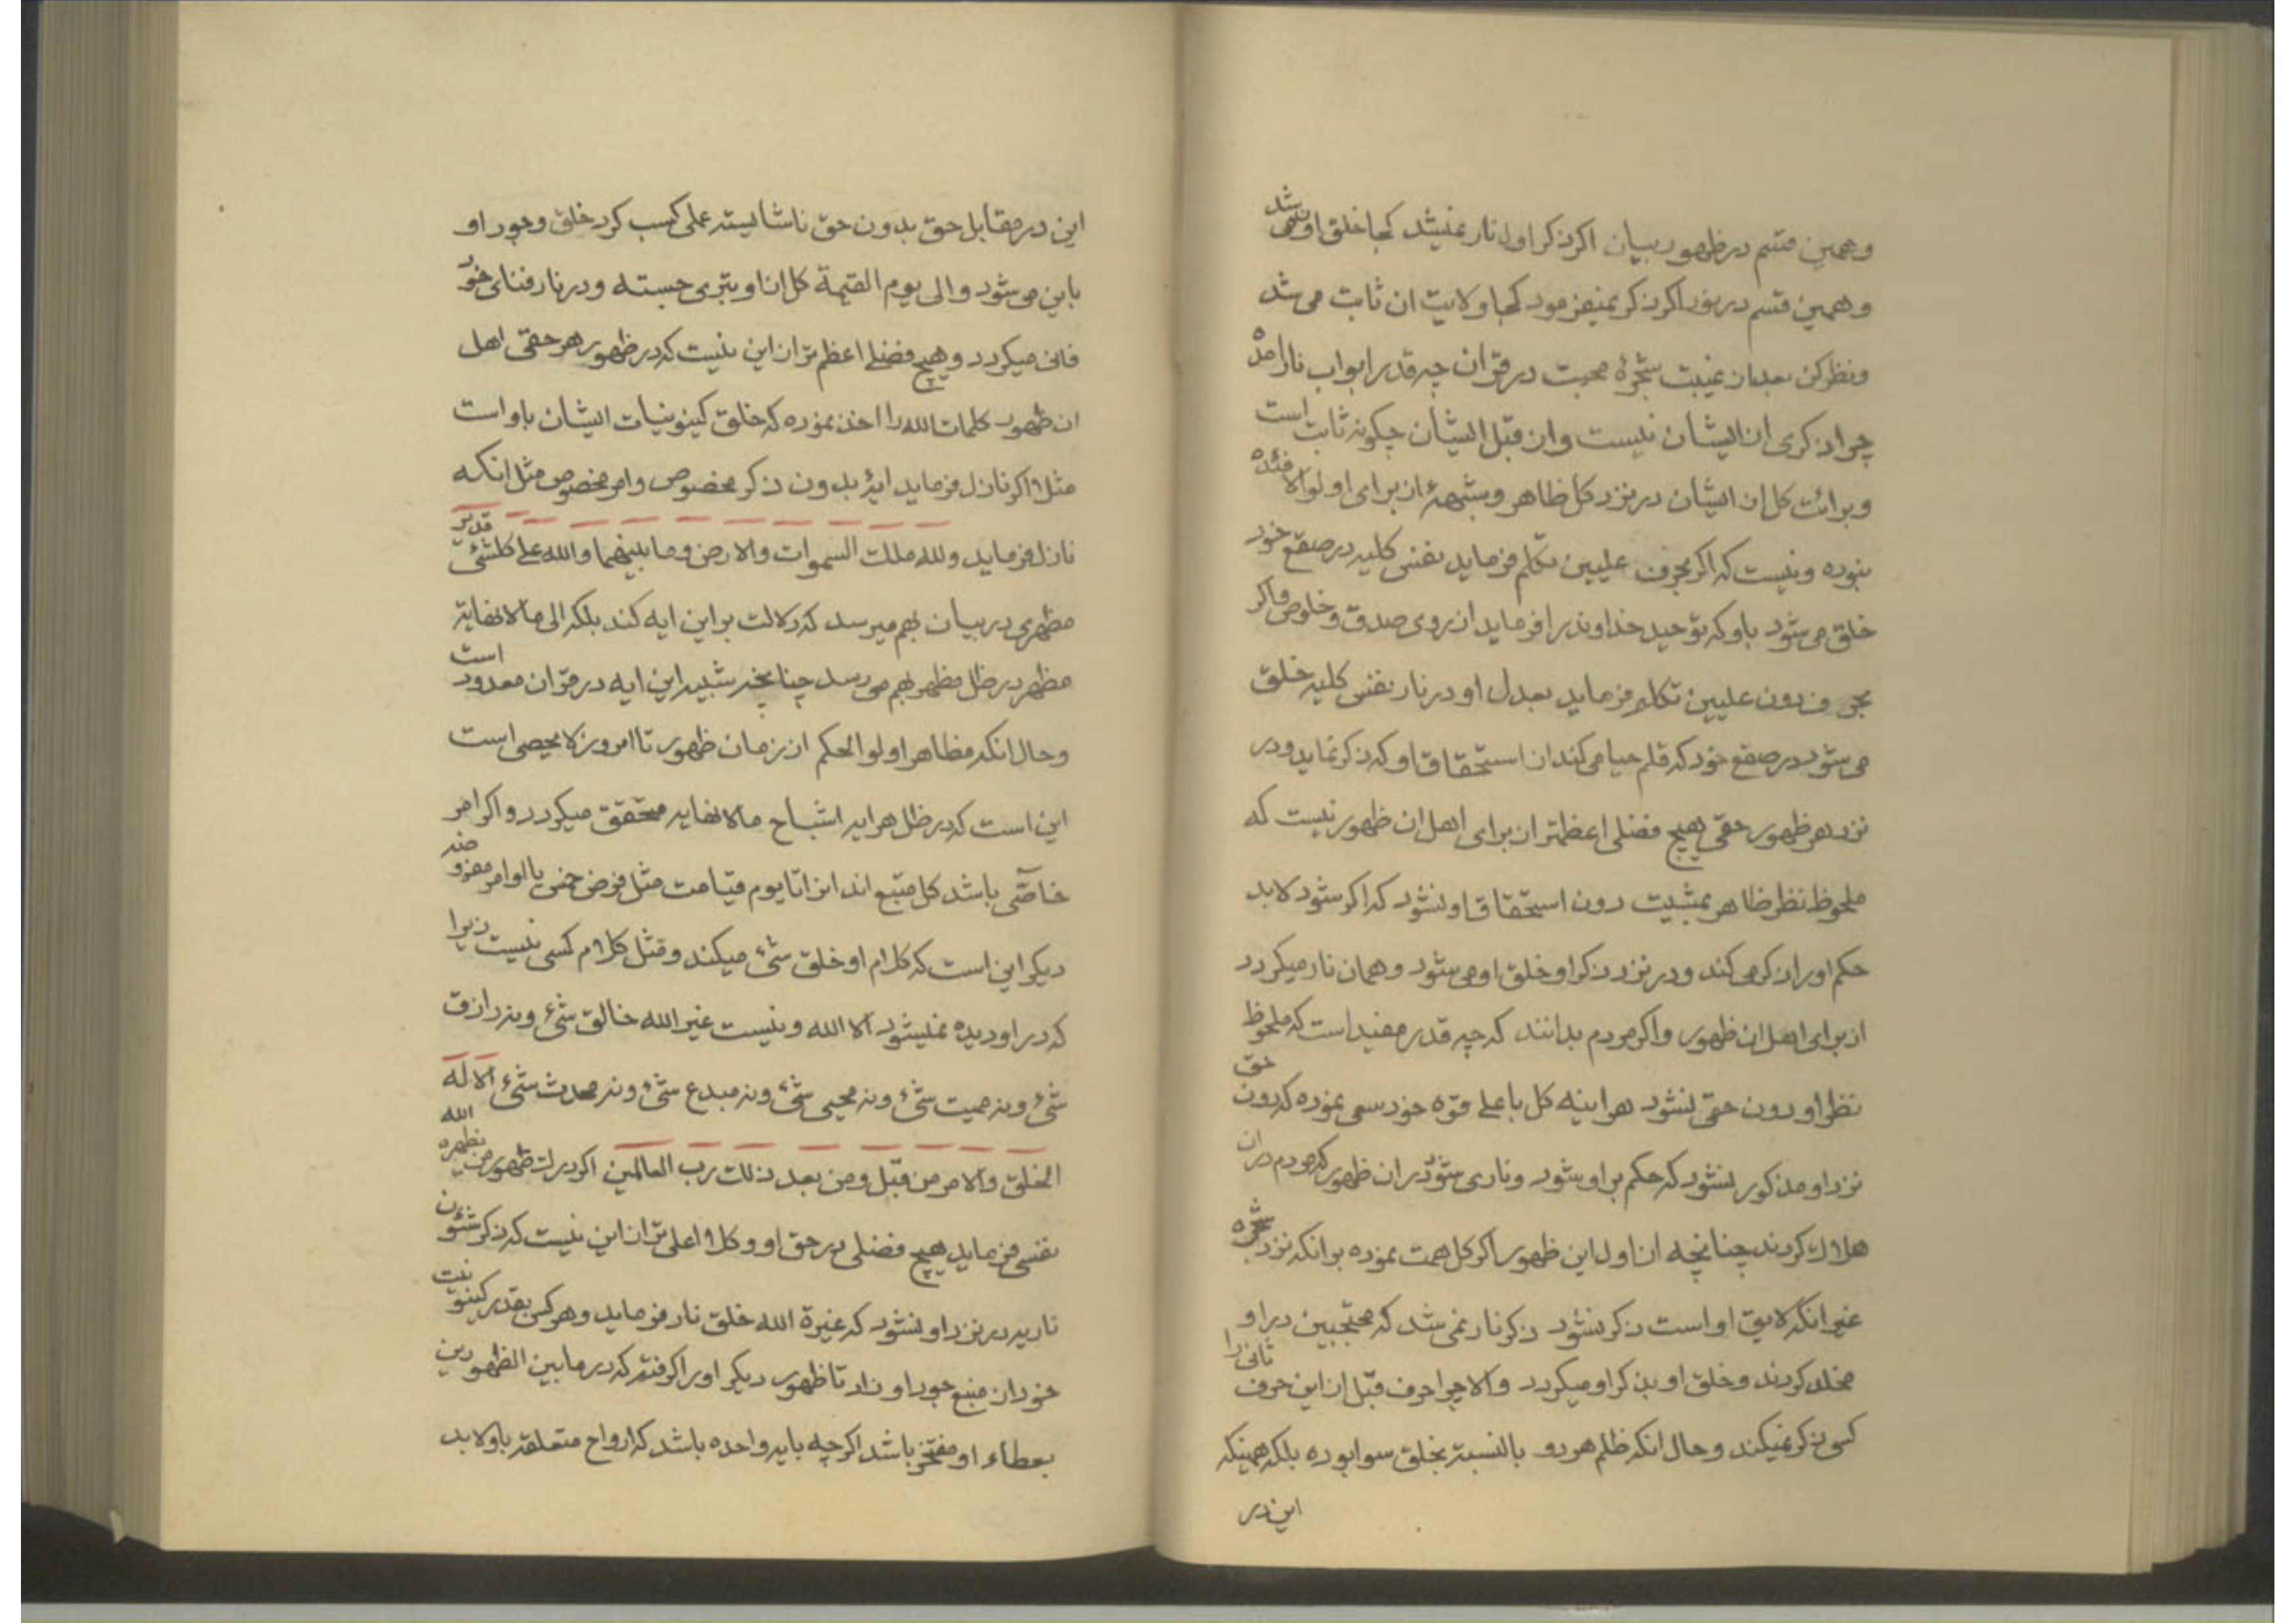 وهمین قسم در ظهور بیان اکر ذکر اول نار نمیشد کجا خلق او نمی شد
وهمین قسم در نور اکر ذکر نمیفرمود کجا ولایت ان ثابت می شد
ونظر کن بعد از غیبت شجرهٔ محبت در قران چه قدر ابواب نار امده
چرا ذکری از ایشان نیست واز قبل ایشان چکونه ثابت است
وبرائت کل از ایشان در نزد کل ظاهر وشبههٔ از برای اولوالافئده
نبوده ونیست که اکر بحرف علیین تکلم فرماید نفسی کلیه در صقع خود
خلق می شود باو که توحید خداوند را فرماید از روی صدق وخلوص واکر
بحرف دون علیین تکلم فرماید بعدل او در نار نفسی کلیه خلق
می شود در صقع خود که قلم حیا می کند از استحقاق او که ذکر نماید ودر
نزد هر ظهور حقی هیچ فضلی اعظمتر از برای اهل ان ظهور نیست که
ملحوظ نظر ظاهر بمشیت دون استحقاق او نشود که اکر شود لابد
حکم او را ذکر می کند ودر نزد ذکر او خلق او می شود وهمان نار میکردد
از برای اهل ان ظهور واکر مردم بدانند که چه قدر مفید است که ملحوظ
نظر او دون حق نشود هراینه کل باعلی قوه خود سعی نموده که دون حق
نزد او مذکور نشود که حکم بر او شود وناری شود در ان ظهور که مردم در ان
هلاک کردند چنانچه از اول این ظهور اکر کل همت نموده بر انکه نزد شجره
غیر انکه لایق او است ذکر نشود ذکر نار نمی شد که محتجبین در او
مخلد کردند وخلق او بذکر او میکردد والا چرا حرف قبل از این حرف ثانی را
کسی ذکر نمیکند وحال انکه ظلم هر دو بالنسبة بخلق سوا بوده بلکه همینکه
این در
این در مقابل حق بدون حق ناشایسته عملی کسب کرد خلق وجود او
باین می شود والی یوم القیمة کل از او تبری جسته ودر نار فنای خود
فانی میکردد وهیچ فضلی اعظم تر از این نیست که در ظهور هر حقی اهل
ان ظهور کلمات الله را اخذ نموده که خلق کینونیات ایشان باو است
مثلا اکر نازل فرماید ایهٔ بدون ذکر مخصوص وامر مخصوص مثل انکه
نازل فرماید ولله ملک السموات والارض وما بینهما والله علی کلشیٔ قدیر
مظهری در بیان بهم میرسد که دلالت بر این ایه کند بلکه الی ما لا نهایة
مظهر در ظل مظهر بهم می رسد چنانچه شبیه این ایه در قران معدود است
وحال انکه مظاهر اولوالحکم از زمان ظهور تا امروز لا یحصی است
این است که در ظل هر ایه اشباح ما لا نهایه متحقق میکردد واکر امر
خاصّی باشد کل متبع اند انرا تا یوم قیامت مثل فرض خمس یا اوامر مفروضه
دیکر این است که کلام او خلق شیٔ میکند ومثل کلام کسی نیست زیرا
که در او دیده نمیشود الا الله ونیست غیر الله خالق شیٔ ونه رازق
شیٔ ونه ممیت شیٔ ونه محیی شیٔ ونه مبدع شیٔ ونه محدث شیٔ الا له
الخلق والامر من قبل ومن بعد ذلک رب العالمین اکر درک ظهور من یظهره الله
نفسی فرماید هیچ فضلی در حق او وکلا اعلی تر از این نیست که ذکر شئون
ناریه در نزد او نشود که غیرة الله خلق نار فرماید وهر کس بقدر کینونیت
خود از منبع جود او زاد تا ظهور دیکر او را کرفته که در ما بین الظهورین
بعطاء او مفتخر باشد اکر چه بایه واحده باشد که ارواح متعلقه باو لابد